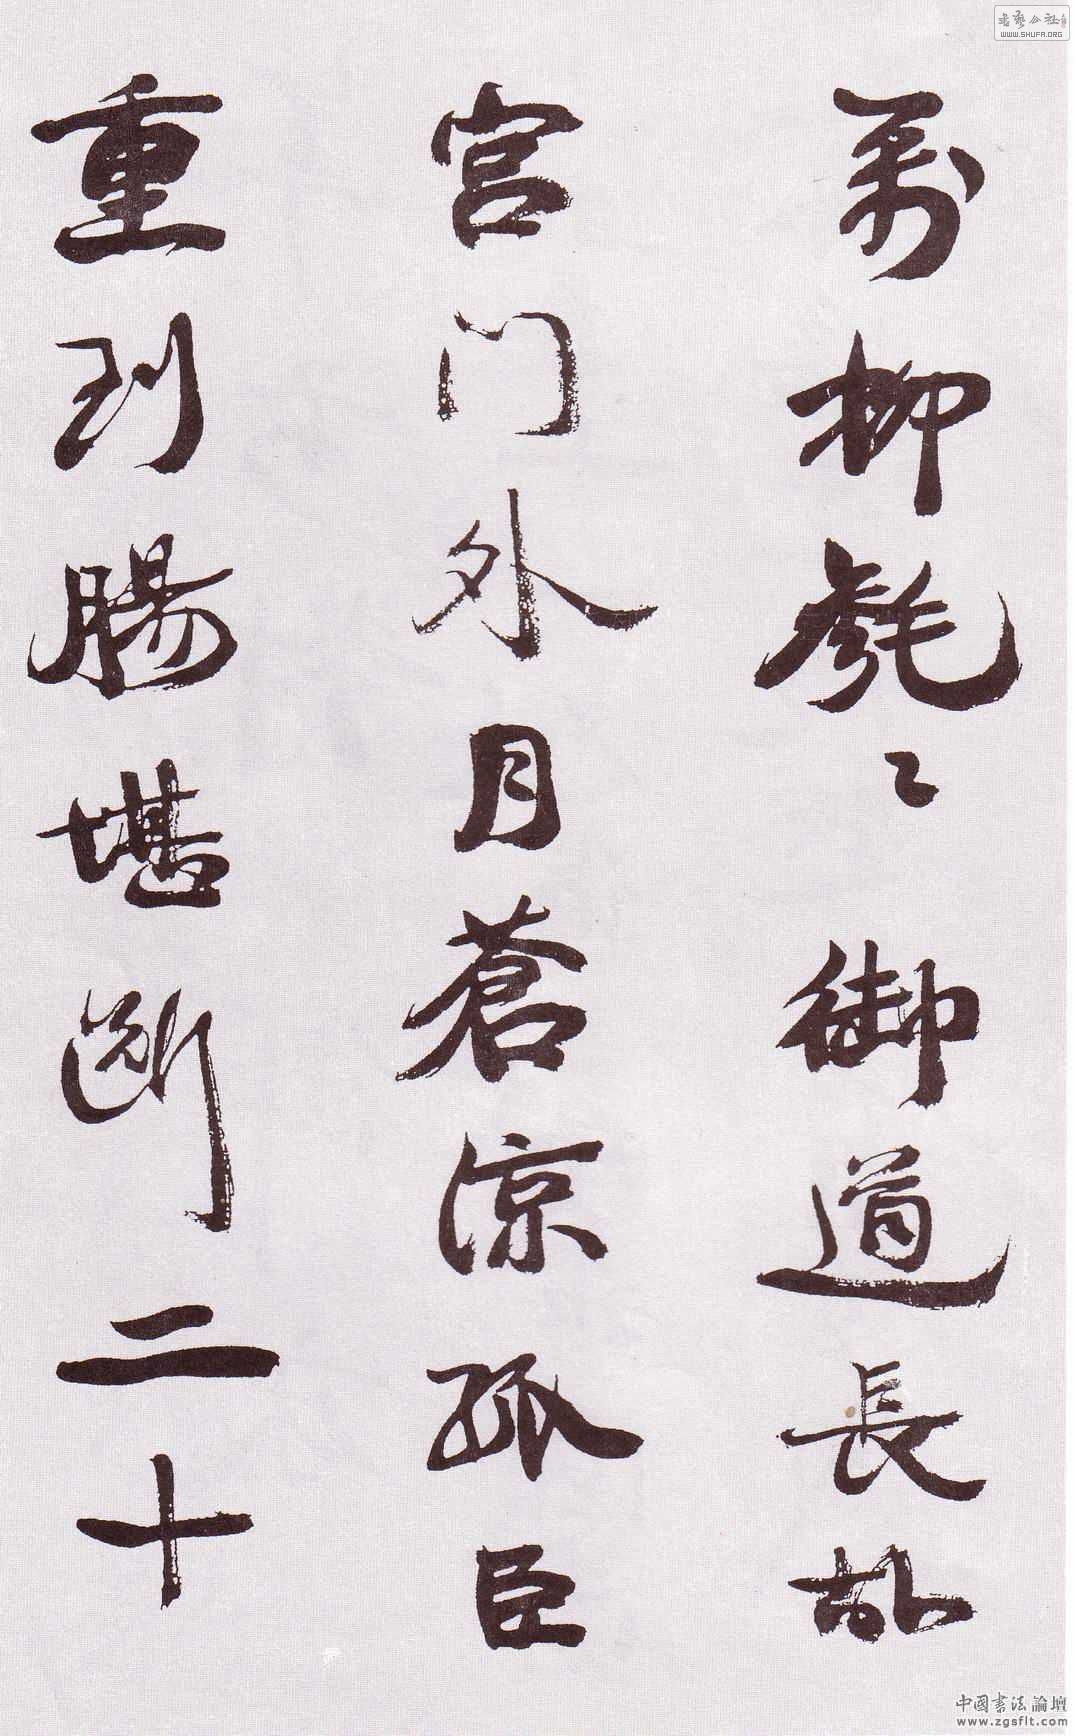 萬柳毿々御道長故
宮門外月蒼涼孤臣
重到腸堪斷二十
書藝公社
WWW.SHUFA.ORG
中國書法論壇
www.zgsflt.com